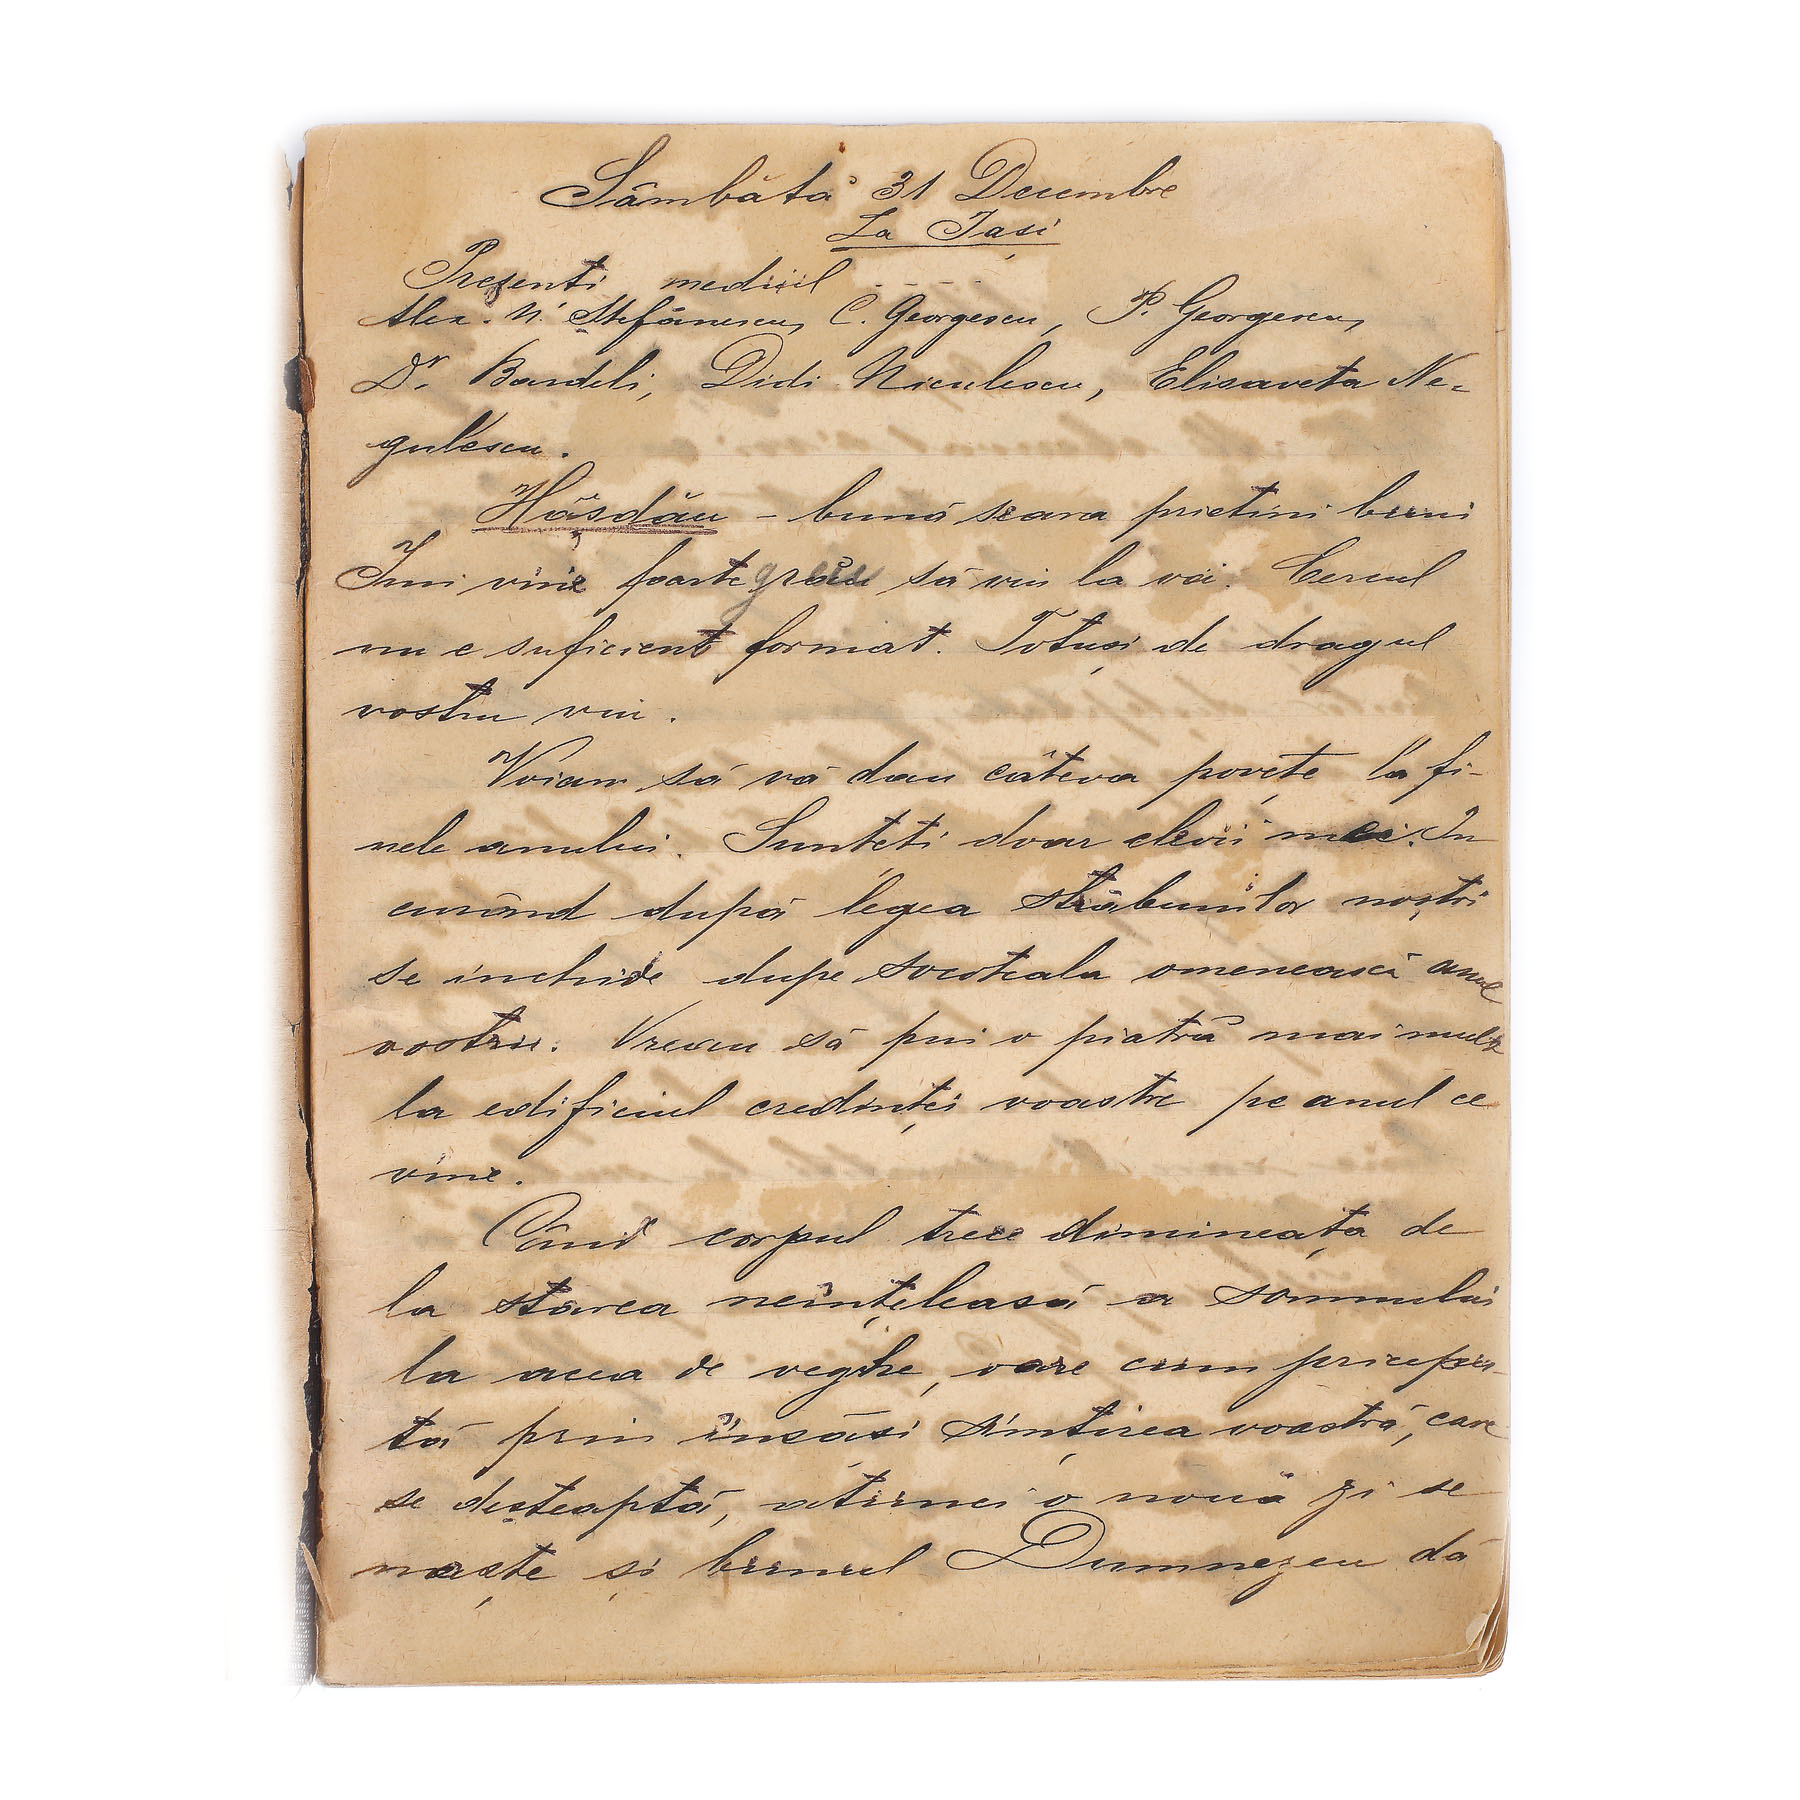 Sâmbătă 31 Decembre
La Iași
Prezenti mediul
Alex. N. Stefănescu, C. Georgescu, P. Georgescu,
Dr. Bardeli, Didi Niculescu, Elisaveta Ne-
gulescu.
Hăsdău – bună seara prietini buni
Imi vine foarte greu să viu la voi. Cercul
nu e suficient format. Totuși de dragul
vostru viu.
Voiam să vă dau câteva povețe la fi-
nele anului. Sunteți doar elevii mei. In
curând după legea străbunilor noștri
se inchide dupe socoteala omenească anul
vostru. Vreau să pui o piatră mai mult
la edificiul credinței voastre pe anul ce
vine.
Când corpul trece dimineața de
la starea neînțeleasă a somnului
la acea de veghe, oare cum pricepu-
tă prin însăși simțirea voastră, care
se deșteaptă, atunci o nouă zi se
naște și bunul Dumnezeu dă